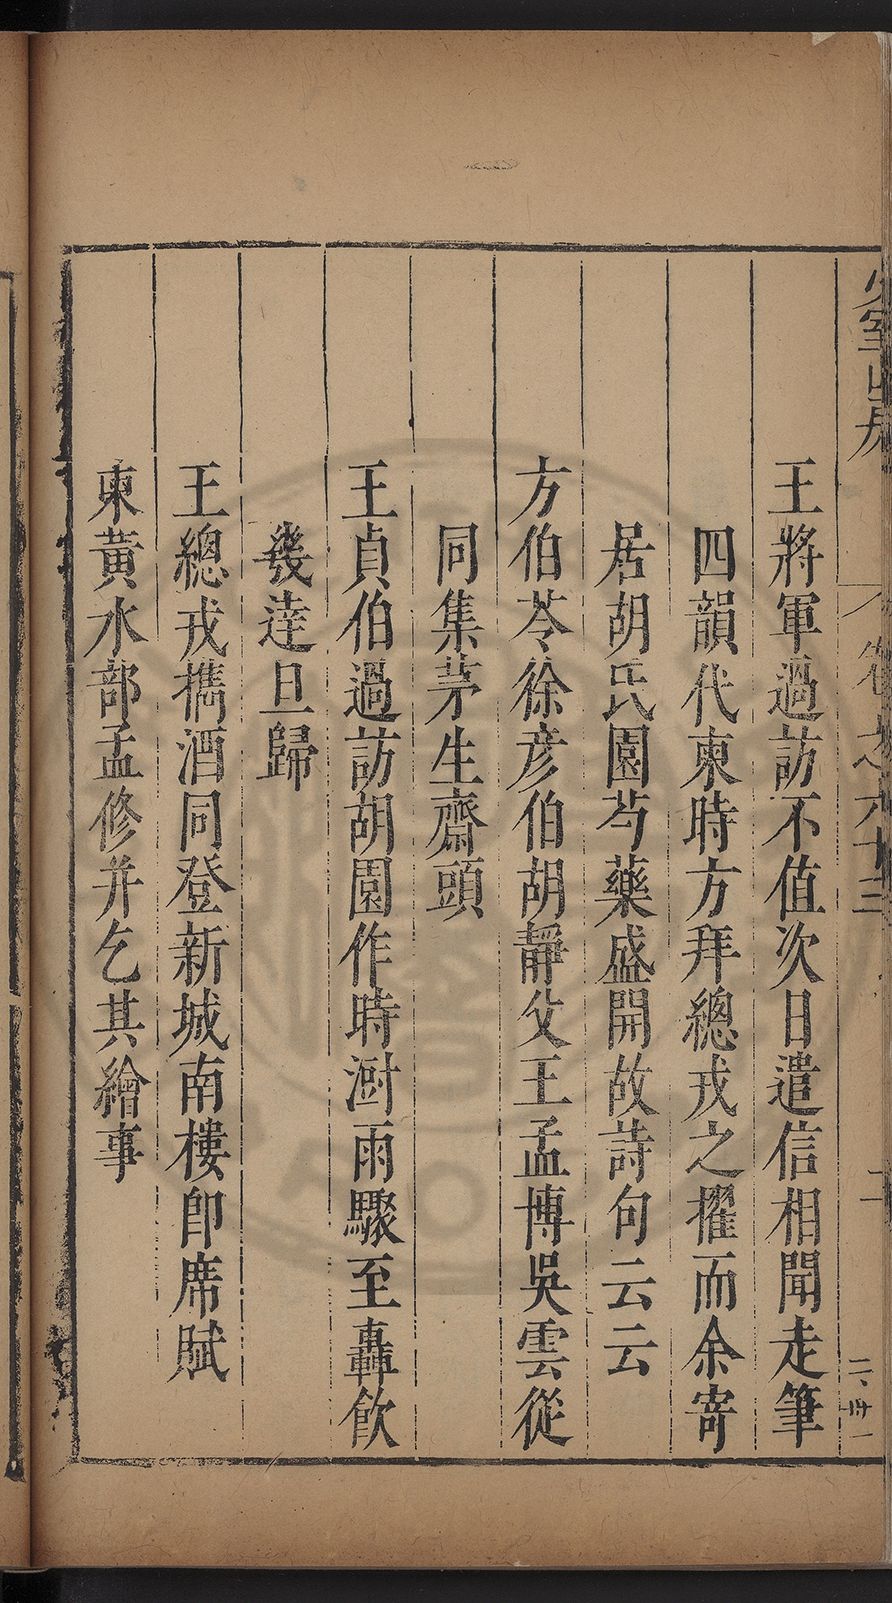 少室山房
卷之六十三
二
王將軍過訪不值次日遣信相聞走筆
四韻代柬時方拜總戎之擢而余寄
居胡氏園芍藥盛開故詩句云云
方伯苓徐彦伯胡靜父王孟博吳雲從
同集茅生齋頭
王貞伯過訪胡園作時澍雨驟至轟飲
幾達旦歸
王總戎携酒同登新城南樓卽席賦
柬黃水部孟修并乞其繪事